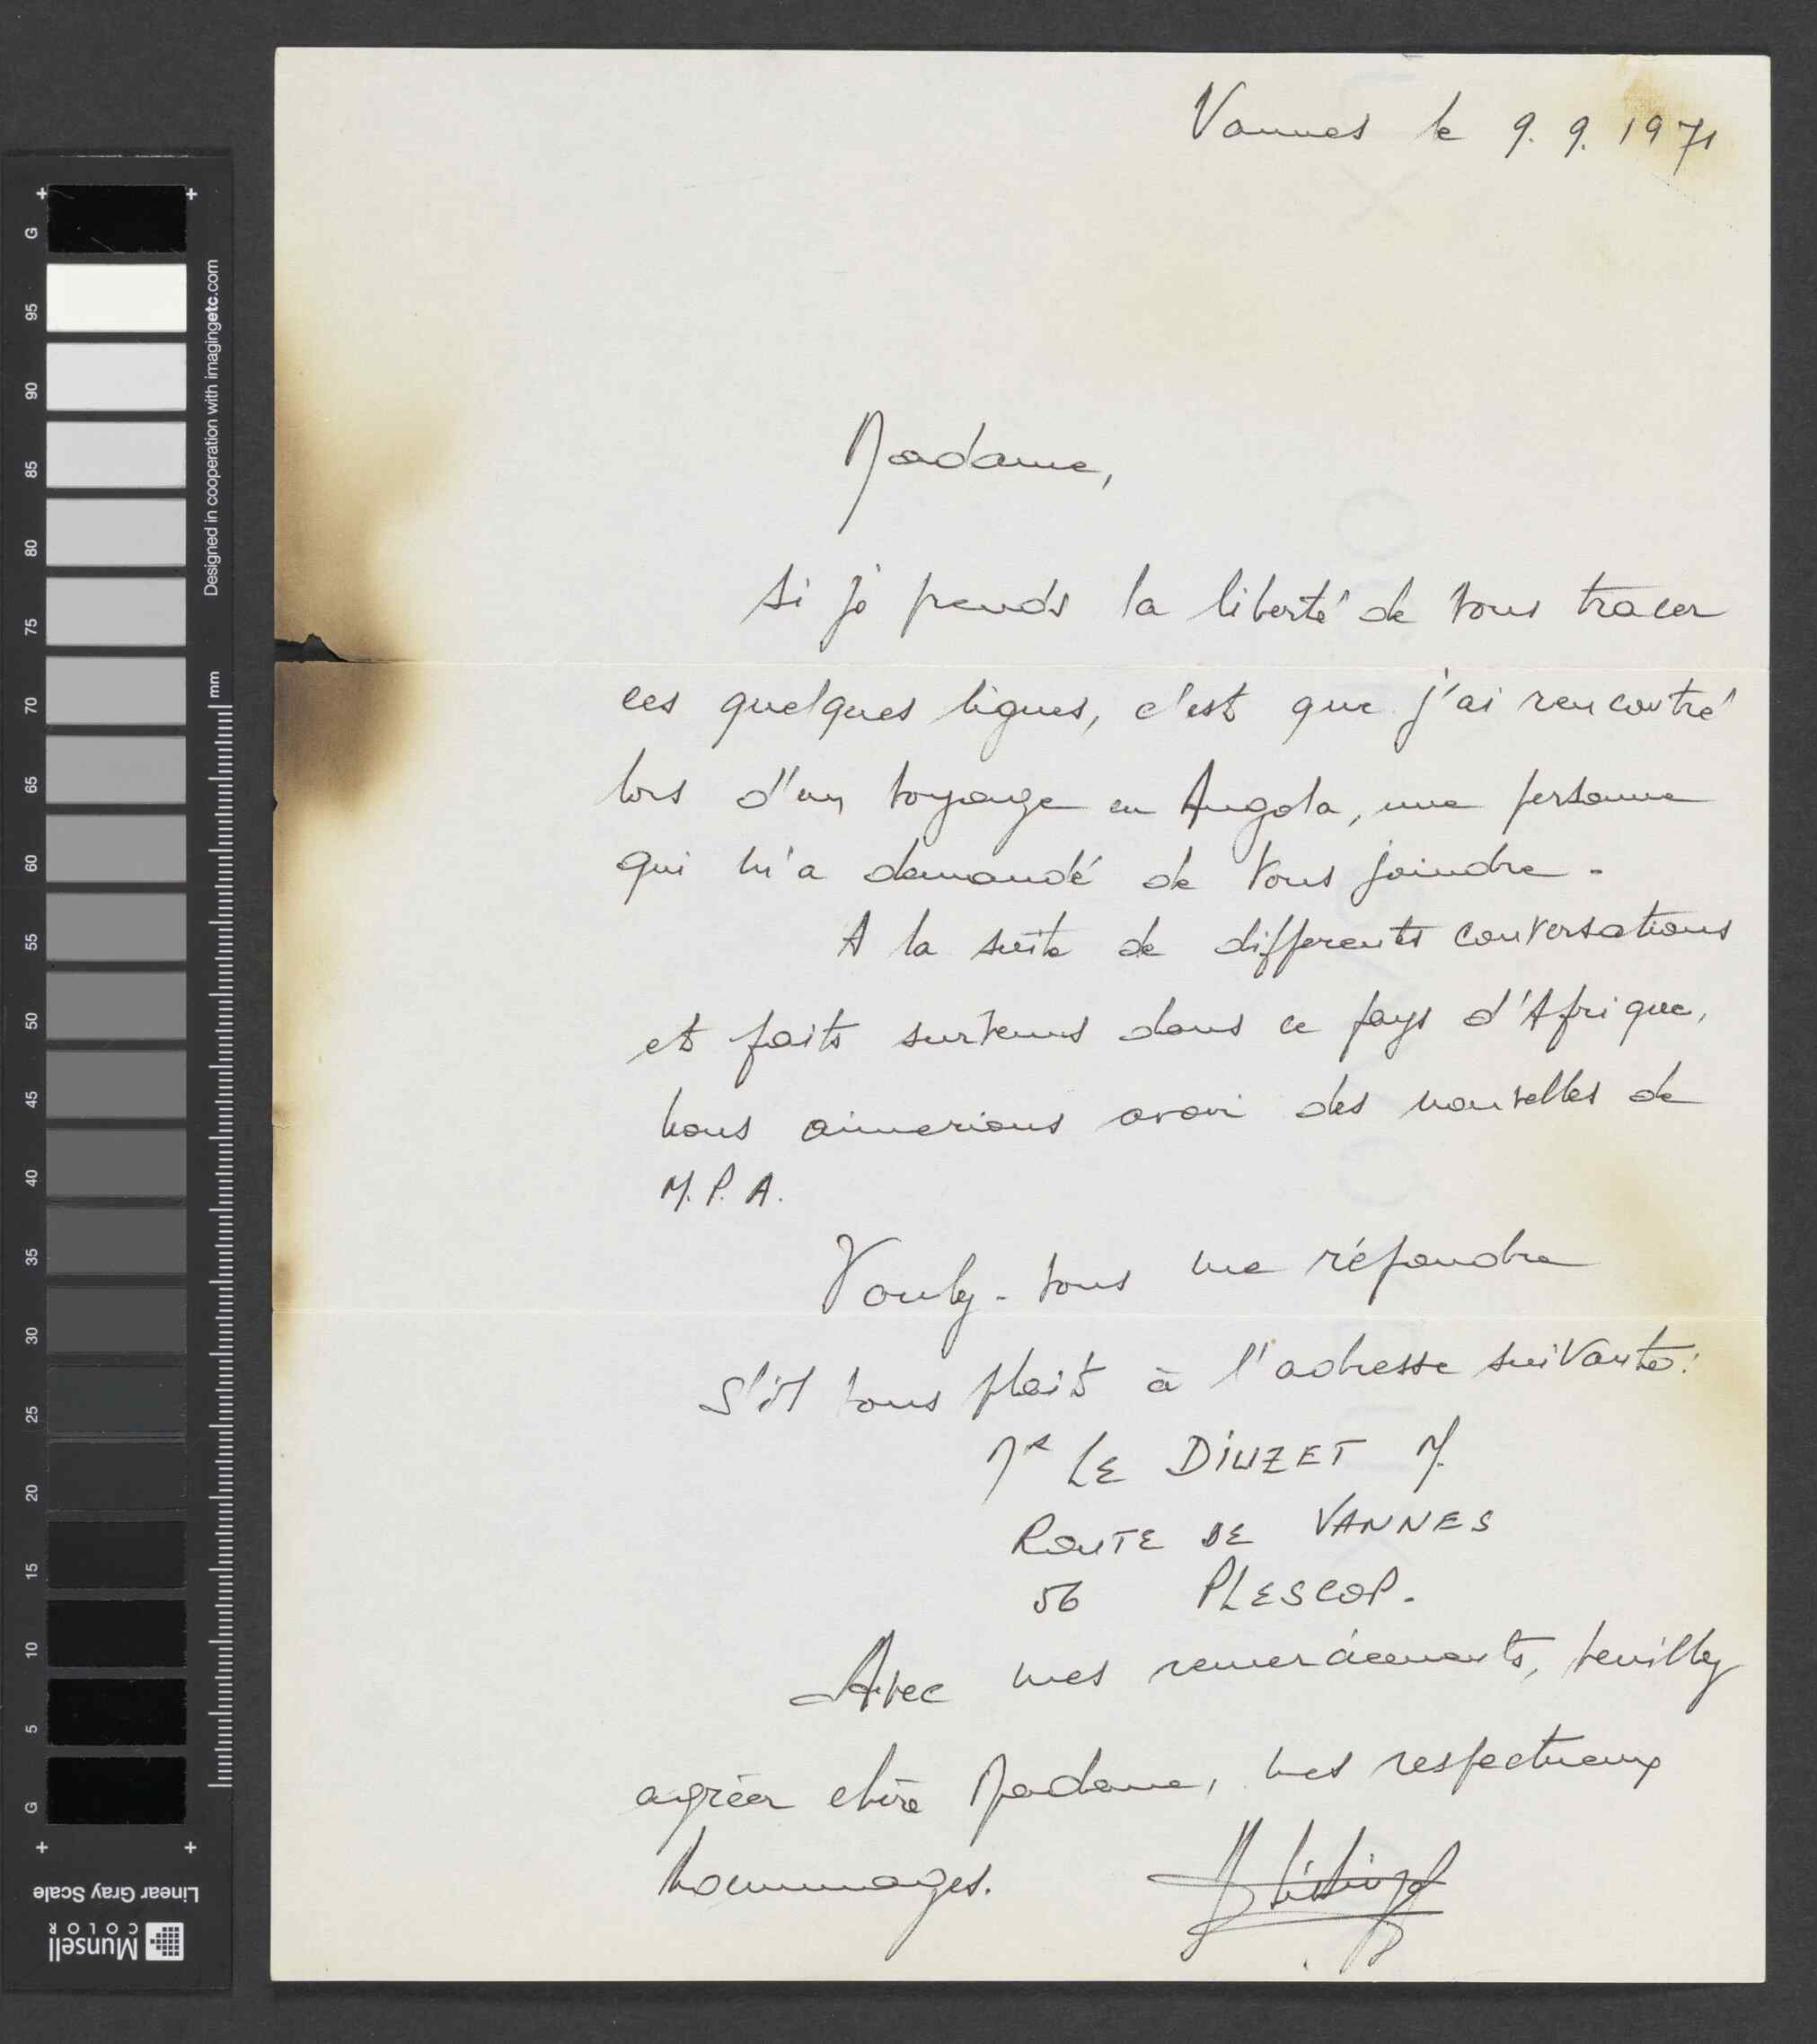 Vannes le 9. 9. 1971
Madame,
Si je prends la liberté de vous tracer
ces quelques lignes, c'est que j'ai rencontré
lors d'un voyage en Angola, une personne
qui m'a demandé de vous joindre.
A la suite de differents conversations
et faits survenus dans ce pays d'Afrique,
nous aimerions avoir des nouvelles de
M. P. A.
Voulez-vous me répondre
S'il vous plait à l'adresse suivante:
Mr LE DIUZET M.
ROUTE DE VANNES
56 PLESCOP.
Avec mes remerciements, veuillez
agréer chère Madame, mes respectueux
hommages.
G 95 90 85 80 75 70 65 60 55 50 45 40 35 30 25 20 15 10 5 G
Designed in cooperation with imagingetc.com
mm
Linear Gray Scale
Munsell
COLOR